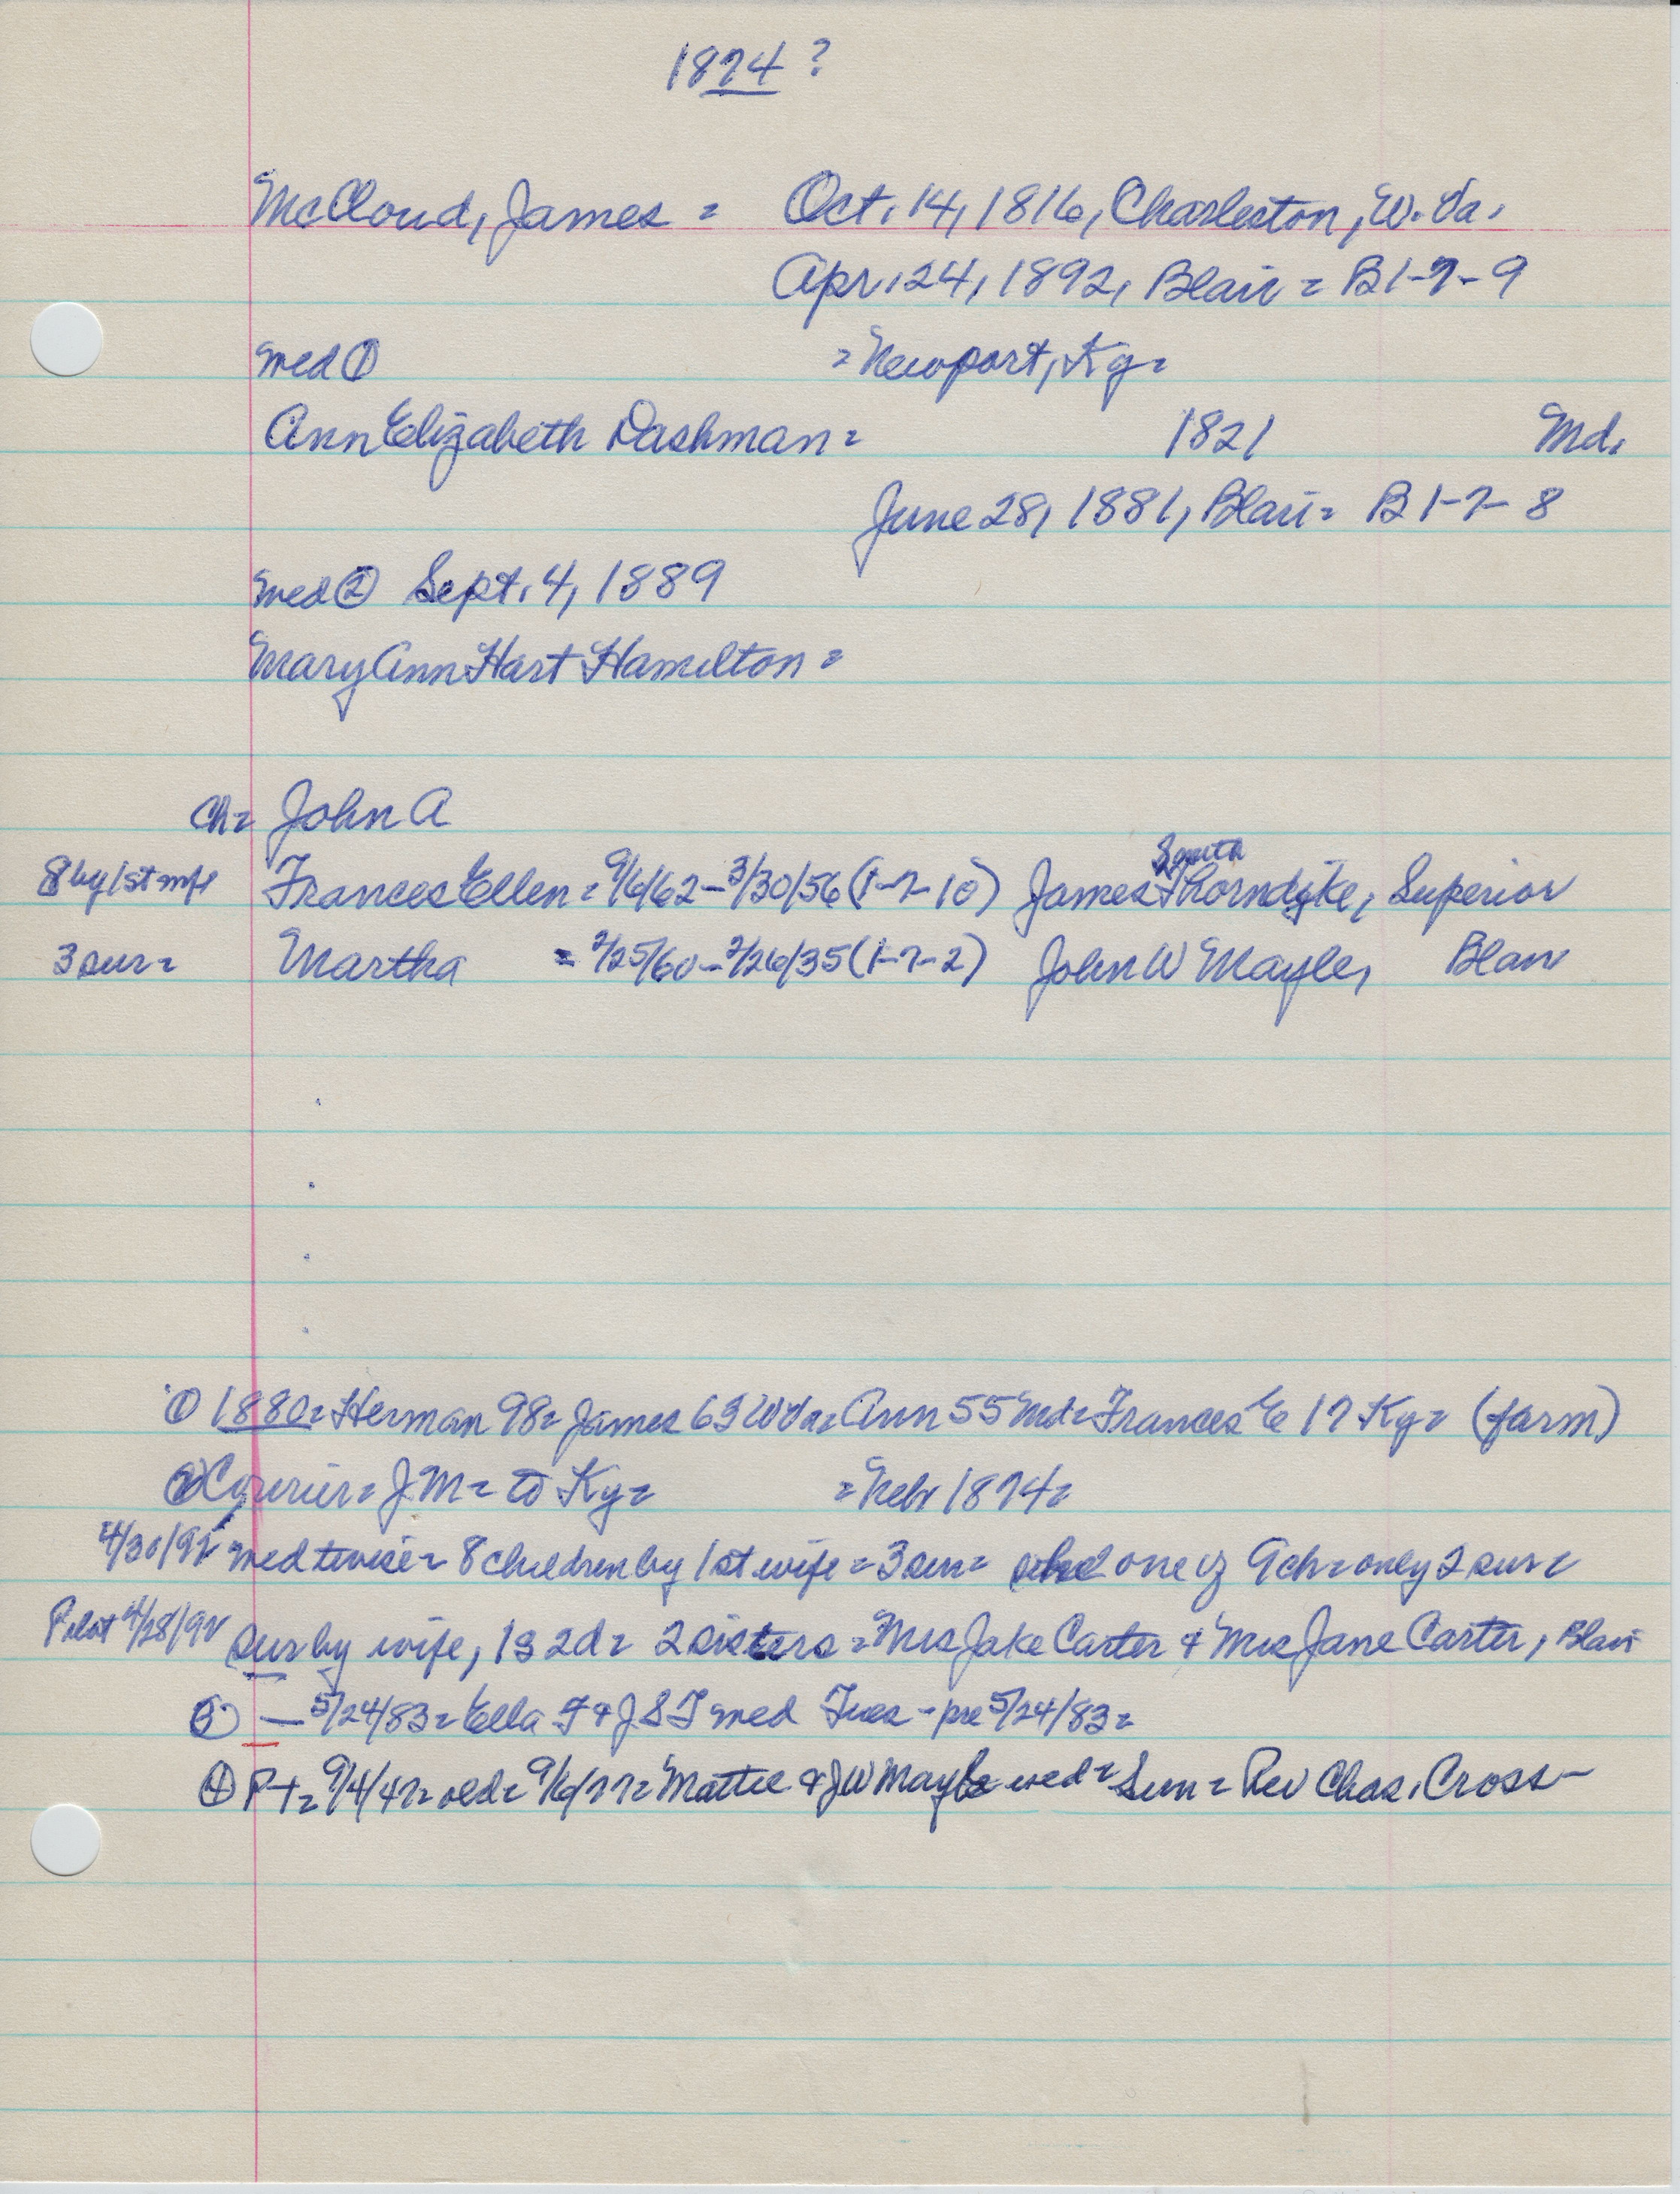 1874?
McCloud, James = Oct. 14, 1816, Charleston, W. Va.
Apr. 24, 1892, Blair = B 1-7-9
med ① = Newport, Ky =
Ann Elizabeth Dashman = 1821 Md.
June 28, 1881, Blair = B 1-7-8
med ② Sept. 4, 1889
Mary Ann Hart Hamilton =
Ch = John A
South
8 by 1st mge Frances Ellen = 9/6/62 - 3/30/56 (1-7-10) James Thorndyke, Superior
3 sur = Martha = 7/25/60 - 7/26/35 (1-7-2) John W Mayle, Blair
① 1880 = Herman 98 = James 63 W Va = Ann 55 Md = Frances E 17 Ky = (farm)
② Courier = J M = to Ky = = Nebr 1874 =
4/30/92 med twice = 8 children by 1st wife = 3 sur = one of 9 ch = only 2 sur =
Pilot 4/28/92 sur by wife, 1s 2d = 2 sisters = Mrs Jake Carter & Mrs Jane Carter, Blair
③ — 5/24/83 = Ella F & J S T med Tues - pre 5/24/83 =
④ P-t = 9/4/47 = old = 9/6/77 = Mattie & J W Mayle wed = Sun = Rev Chas. Cross -